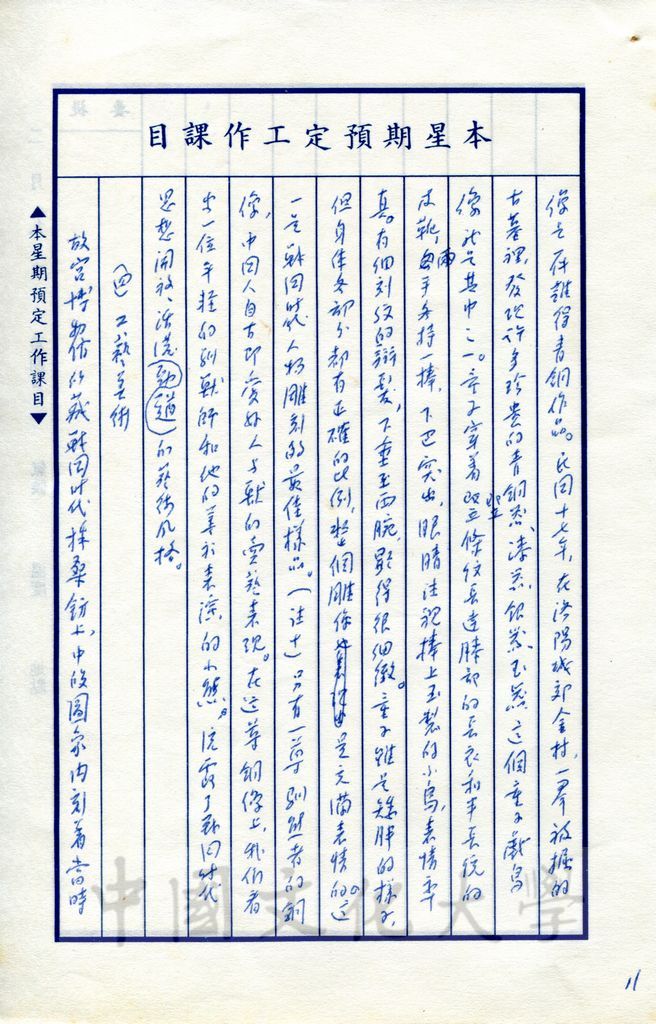 本星期預定工作課目
像是在難得青銅作品。民国十七年,在洛陽城郊金村,一羣被掘的
古墓裡,發現許多珍貴的青銅器、漆器、銀器、玉器 這個童子戲鳥
像就是其中之一。童子穿着竪條紋長達膝部的長衣和半長統的
皮靴,兩手各持一棒,下巴突出,眼睛注視棒上玉製的小鳥,表情率
真。有細刻紋的辮髮,下垂至兩腕,顯得很細緻。童子雖是矮胖的樣子,
但身体各部分都有正確的比例,整個雕像是充滿表情的。這
一是戰国時代人物雕刻的最佳樣品。(註十)只有一尊馴熊者的銅
像,中国人自古即愛好人与獸的雲藝表現。在這尊銅像上,我们看
出一位年輕的馴獸師和他的華衣表演的小熊。流露了戰国時代
思想開放、活潑動道的藝術風格。
四 工藝美術
故宮博物館收藏戰国時代採桑鈁上,中段圖象内刻着當時
▲本星期預定工作課目▼
中國文化大學
11